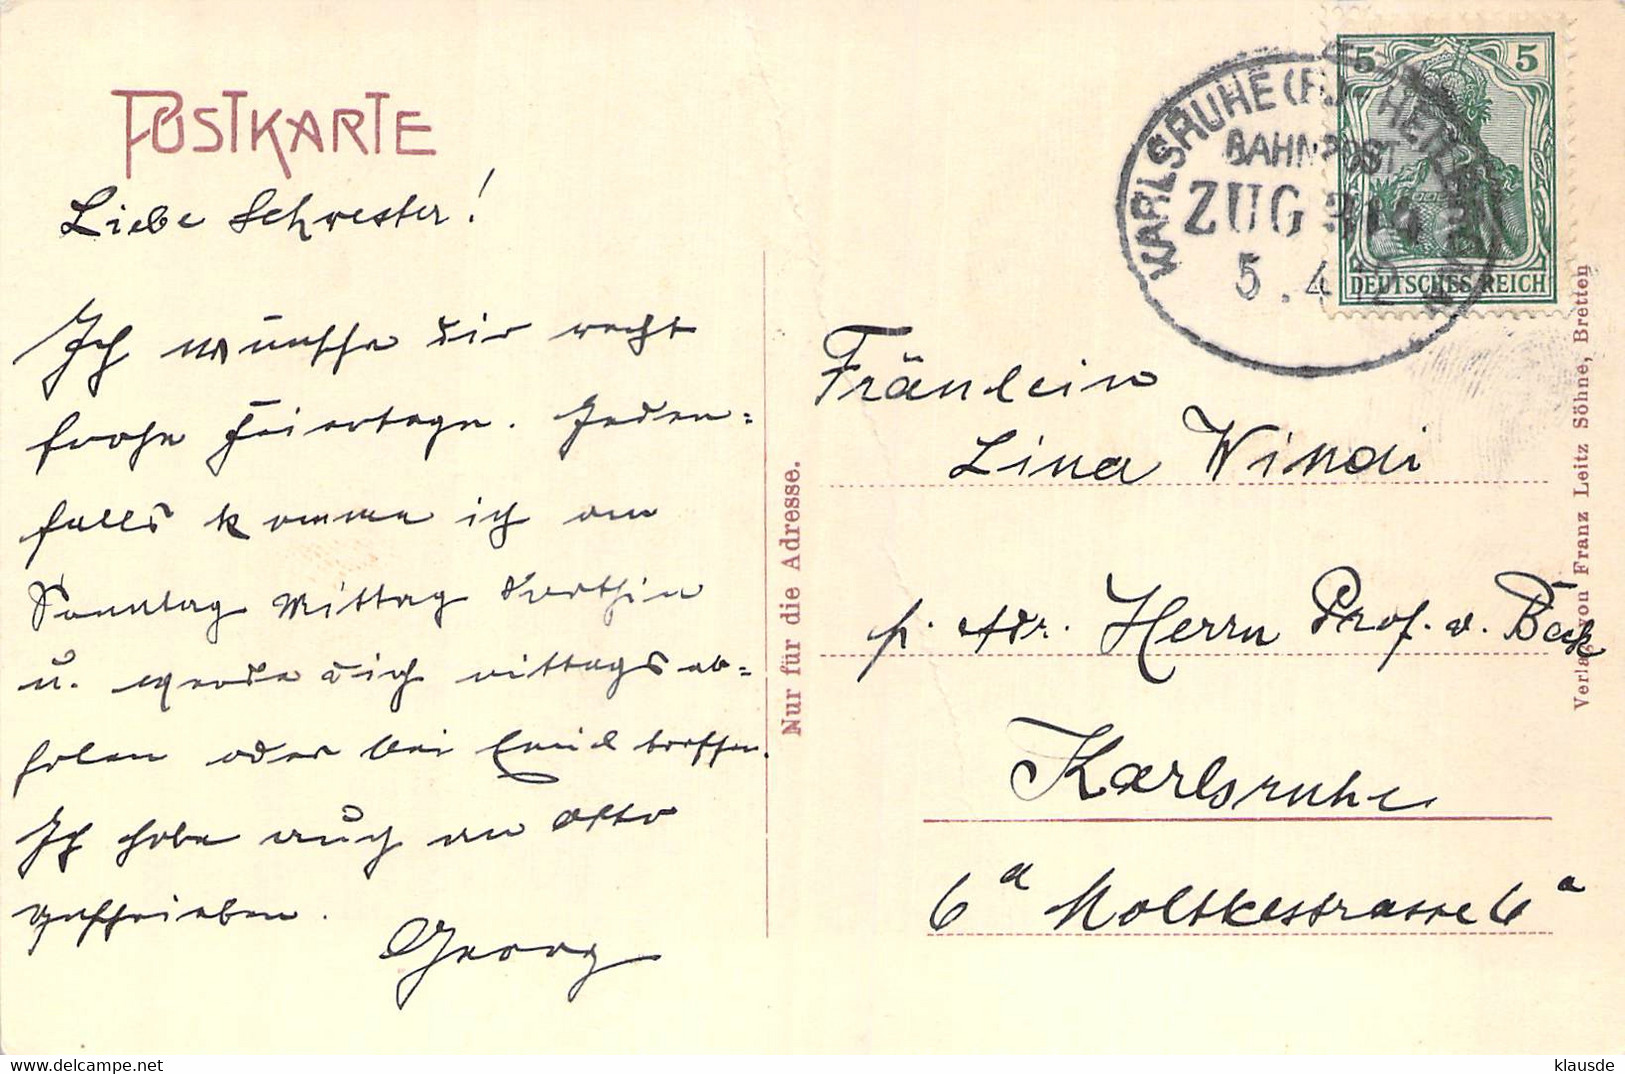 POSTKARTE
Liebe Schwester!
Ich wünsche dir recht
frohe Feiertage. Jeden-
falls komme ich am
Sonntag Mittag dorthin
u. werde dich mittags ab-
holen oder bei Emil treffen.
Ich habe auch an Otto
geschrieben.
Georg
Nur für die Adresse.
KARLSRUHE (B.)-HEILBRONN
BAHNPOST
ZUG
5.4.12
5 5
DEUTSCHES REICH
Fräulein
Lina
p. Adr. Herrn Prof. v. Beck
Karlsruhe
6a Moltkestrasse 6a
Verlag von Franz Leitz Söhne, Bretten
klausde